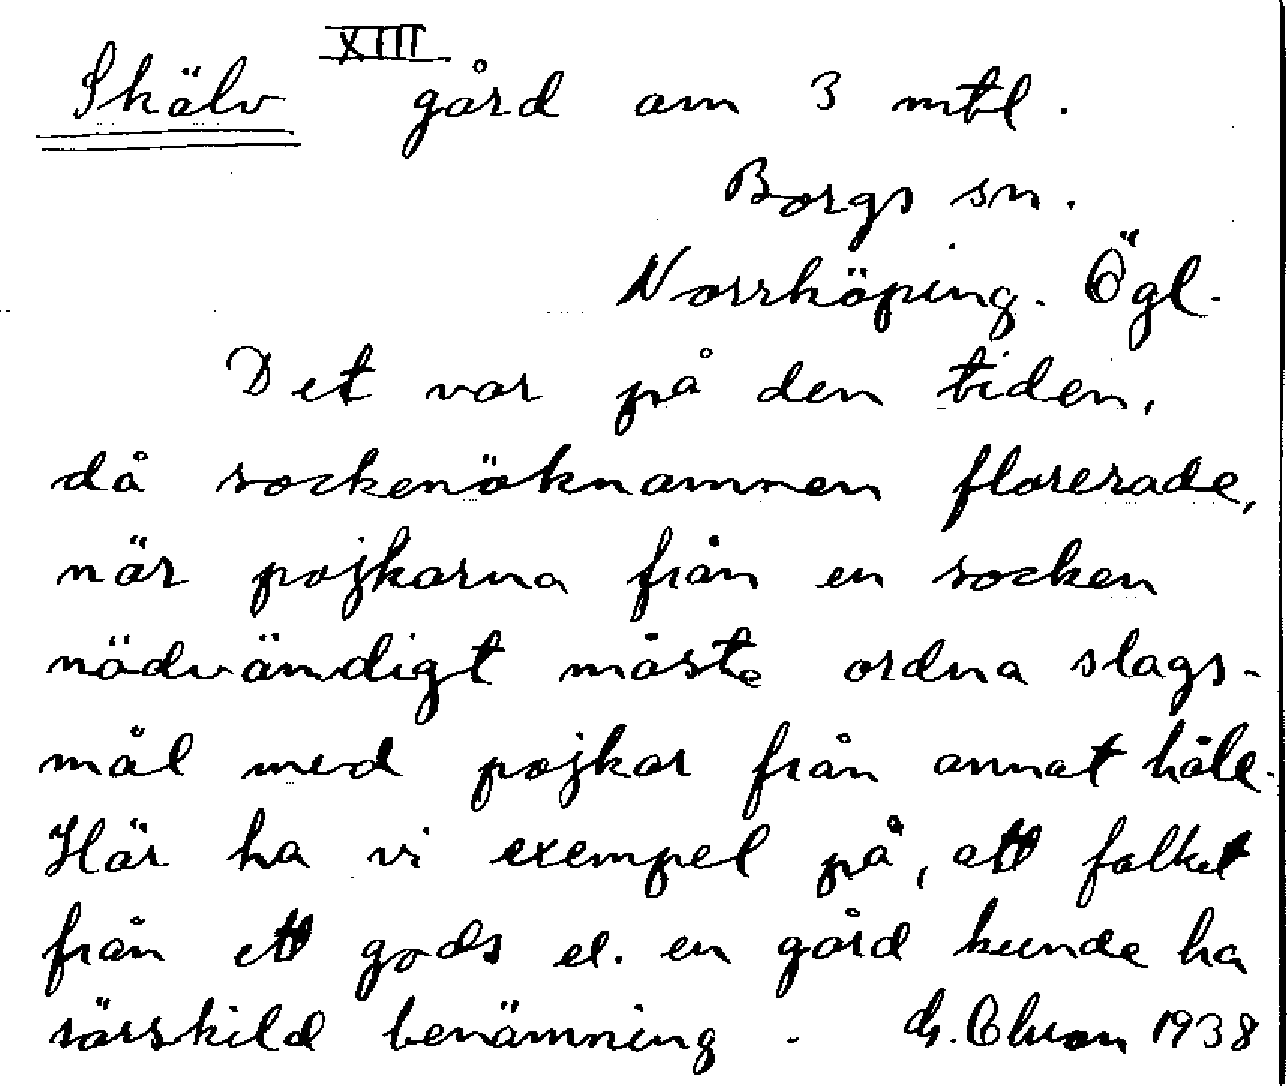 XIII
Skälv gård om 3 mtl.
Borgs sn.
Norrköping. Ögl.
Det var på den tiden,
då sockenöknamnen florerade,
när pojkarna från en socken
nödvändigt måste ordna slags-
mål med pojkar från annat håll.
Här ha vi exempel på, att folket
från ett gods el. en gård kunde ha
särskild benämning. 1938